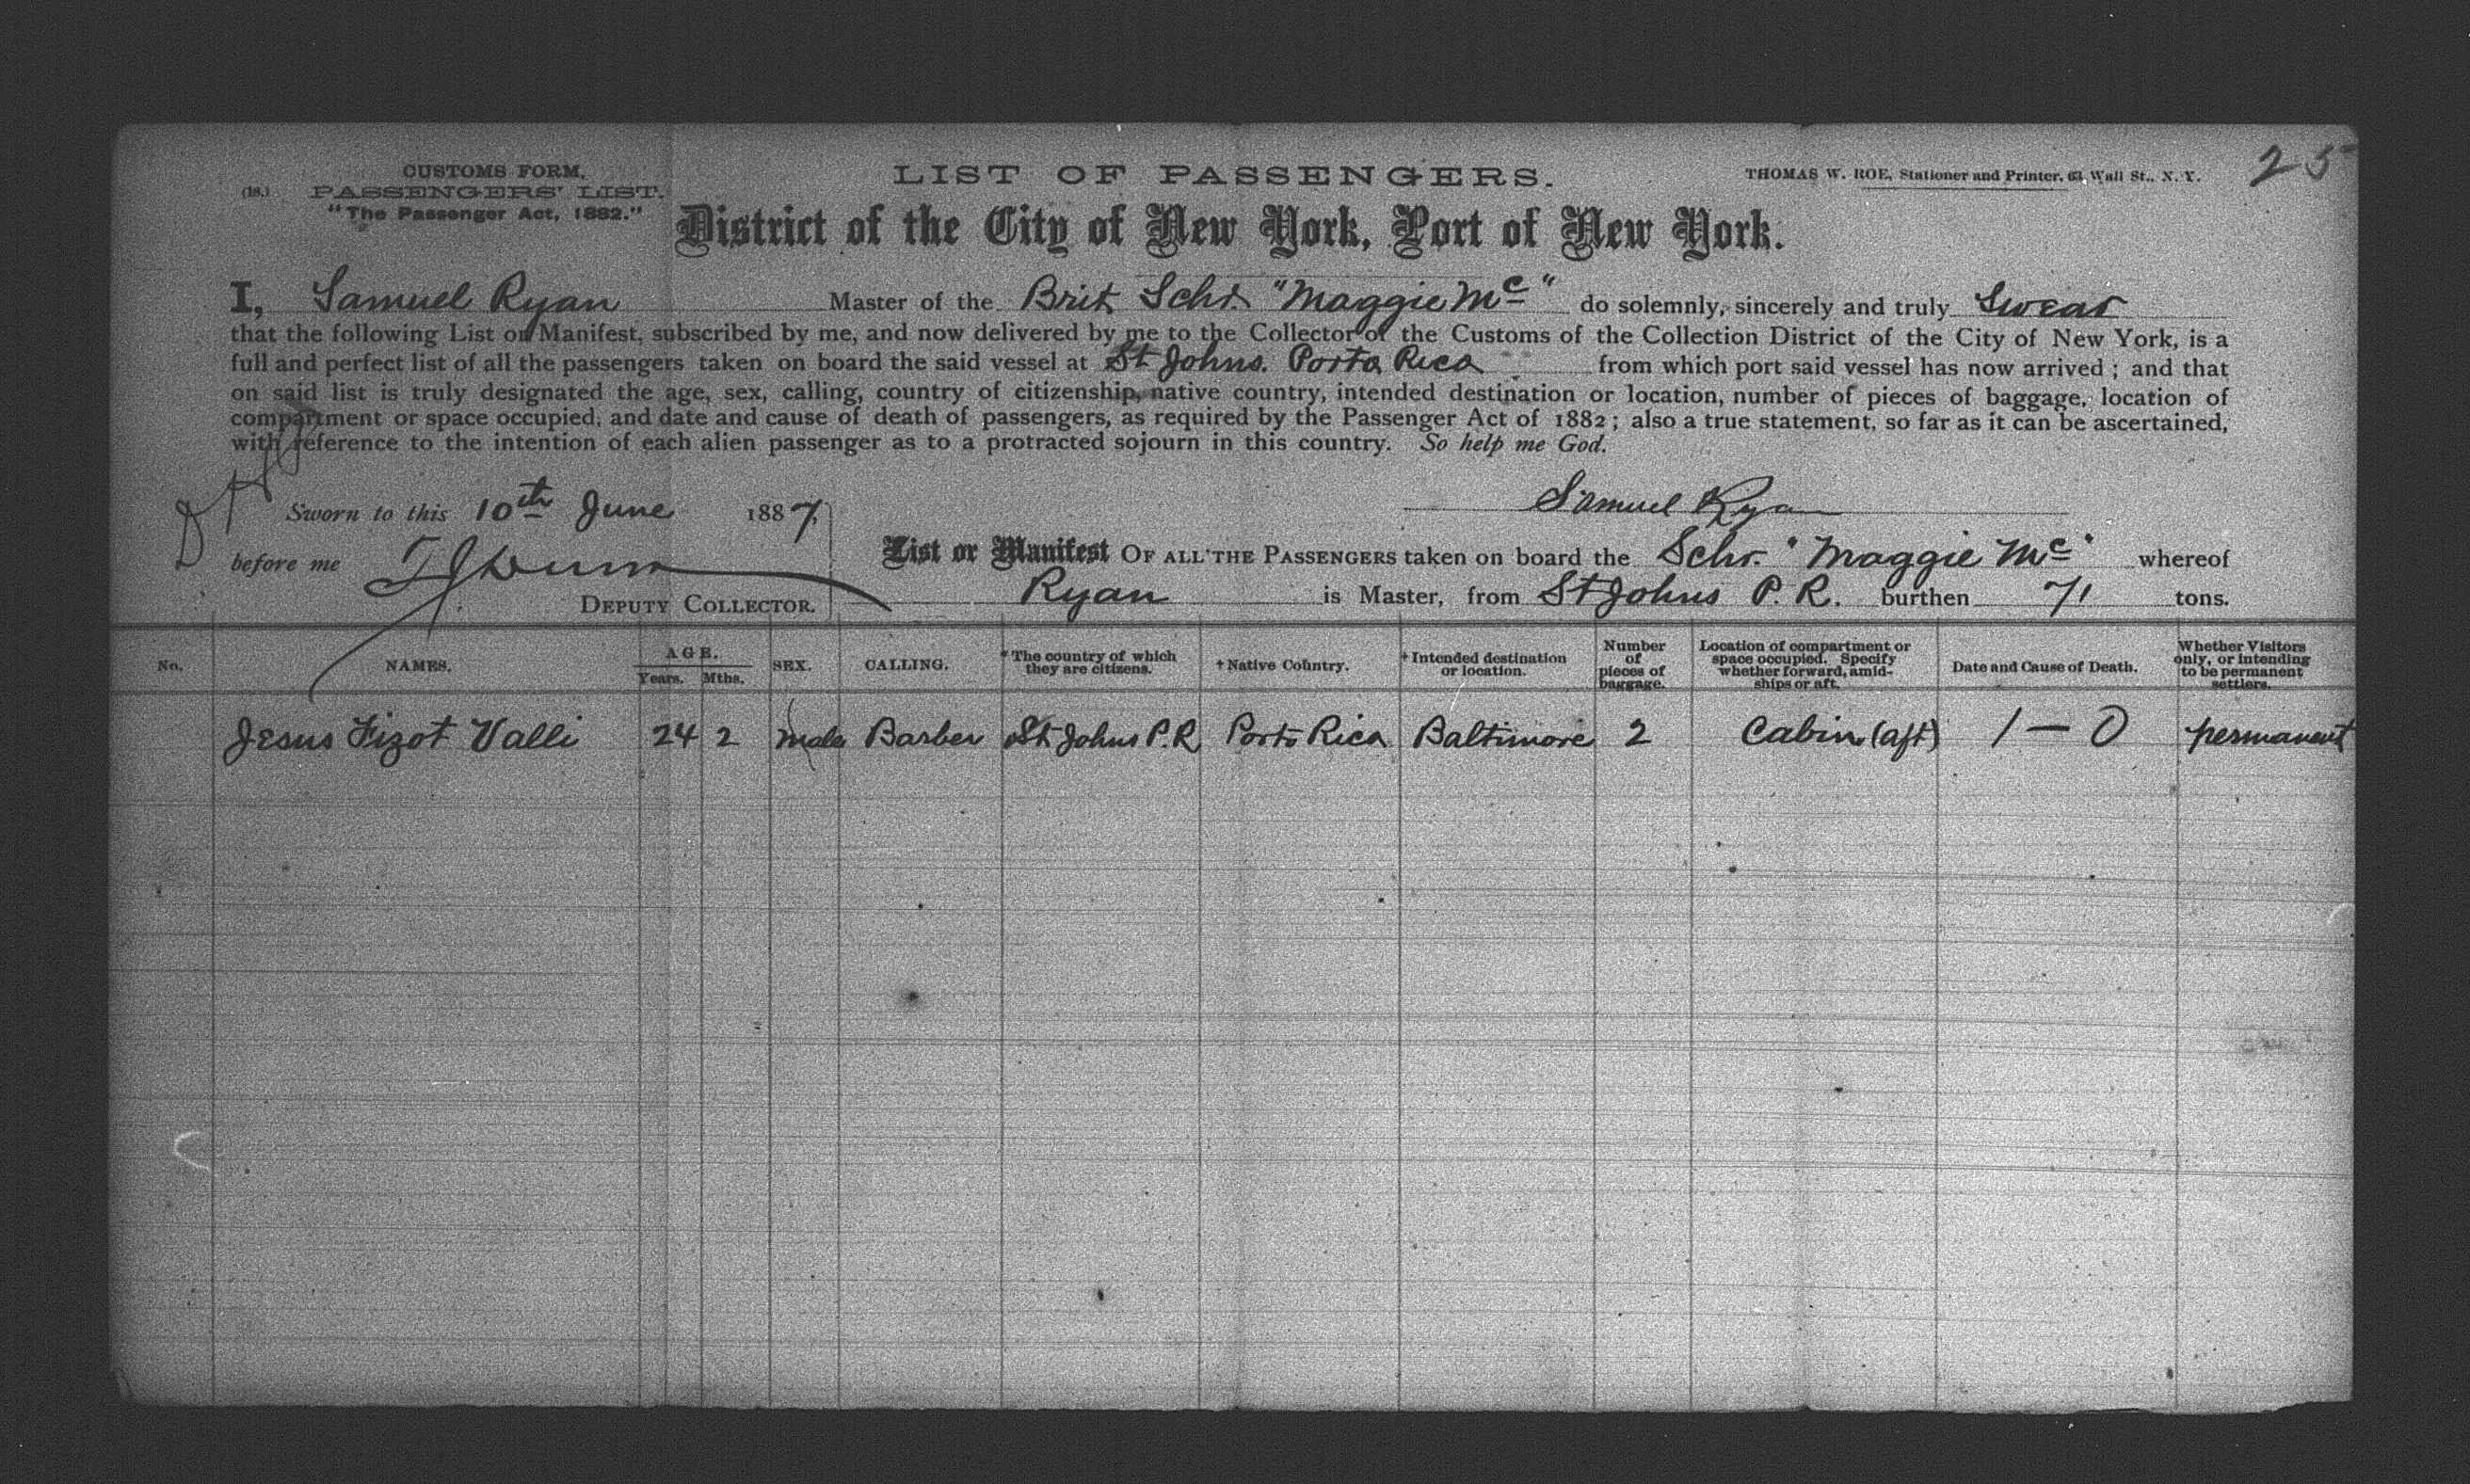 CUSTOMS FORM.
(18.) PASSENGERS' LIST.
"The Passenger Act, 1882."
LIST OF PASSENGERS.
THOMAS W. ROE, Stationer and Printer, 63 Wall St., N. Y.
25
District of the City of New York, Port of New York.
I, Samuel Ryan Master of the Brit Schr. "Maggie Mc" do solemnly, sincerely and truly Swear
that the following List or Manifest, subscribed by me, and now delivered by me to the Collector of the Customs of the Collection District of the City of New York, is a
full and perfect list of all the passengers taken on board the said vessel at St Johns. Porto Rico from which port said vessel has now arrived; and that
on said list is truly designated the age, sex, calling, country of citizenship, native country, intended destination or location, number of pieces of baggage, location of
compartment or space occupied, and date and cause of death of passengers, as required by the Passenger Act of 1882; also a true statement, so far as it can be ascertained,
with reference to the intention of each alien passenger as to a protracted sojourn in this country. So help me God.
Sworn to this 10th June 1887,
Samuel Ryan
before me
DEPUTY COLLECTOR.
List or Manifest OF ALL THE PASSENGERS taken on board the Schr. "Maggie Mc" whereof
Ryan is Master, from St Johns P. R. burthen 71 tons.
No. NAMES. AGE. Years. Mths. SEX. CALLING. *The country of which they are citizens. †Native Country. †Intended destination or location. Number of pieces of baggage. Location of compartment or space occupied. Specify whether forward, amid-ships or aft. Date and Cause of Death. Whether Visitors only, or intending to be permanent settlers.
Jesus Fizot Valli 24 2 male Barber St Johns P. R Porto Rico Baltimore 2 Cabin (aft) 1 — 0 permanent